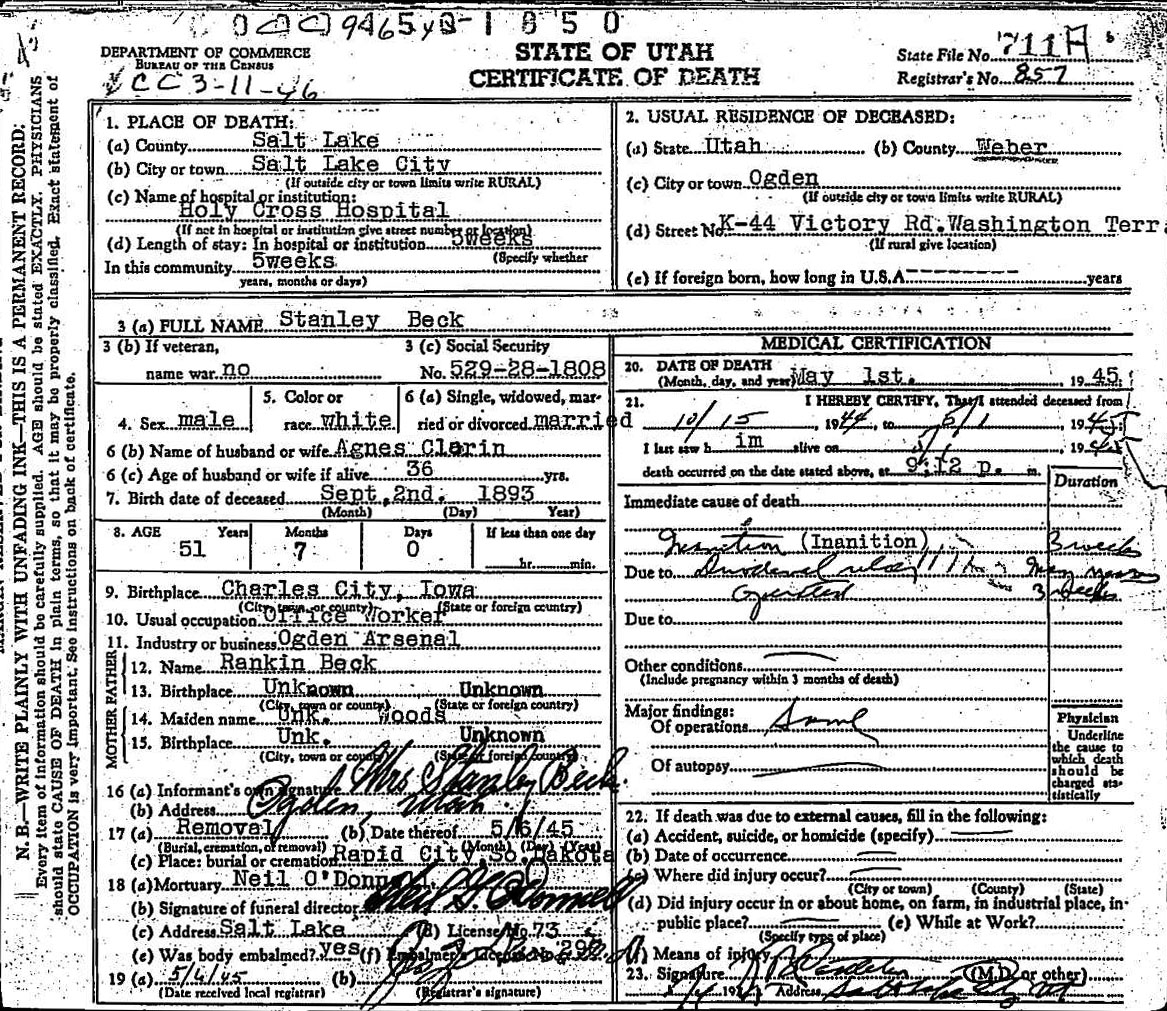 DEPARTMENT OF COMMERCE
BUREAU OF THE CENSUS
CC 3-11-46
STATE OF UTAH
CERTIFICATE OF DEATH
State File No. 711A
Registrar's No. 857
N. B.—WRITE PLAINLY WITH UNFADING INK—THIS IS A PERMANENT RECORD:
Every item of information should be carefully supplied. AGE should be stated EXACTLY. PHYSICIANS
should state CAUSE OF DEATH in plain terms, so that it may be properly classified. Exact statement of
OCCUPATION is very important. See instructions on back of certificate.
1. PLACE OF DEATH:
(a) County Salt Lake
(b) City or town Salt Lake City
(If outside city or town limits write RURAL)
(c) Name of hospital or institution:
Holy Cross Hospital
(If not in hospital or institution give street number or location)
(d) Length of stay: In hospital or institution 5weeks
(Specify whether
In this community 5weeks
years, months or days)
2. USUAL RESIDENCE OF DECEASED:
(a) State Utah (b) County Weber
(c) City or town Ogden
(If outside city or town limits write RURAL)
(d) Street No. K-44 Victory Rd. Washington Terr
(If rural give location)
(e) If foreign born, how long in U.S.A. years
3 (a) FULL NAME Stanley Beck
3 (b) If veteran,
name war no
3 (c) Social Security
No. 529-28-1808
4. Sex male
5. Color or
race white
6 (a) Single, widowed, mar-
ried or divorced married
6 (b) Name of husband or wife Agnes Clarin
6 (c) Age of husband or wife if alive 36 yrs.
7. Birth date of deceased Sept. 2nd. 1893
(Month) (Day) Year)
8. AGE Years Months Days If less than one day
51 7 0 hr. min.
9. Birthplace Charles City, Iowa
(City, town, or county) (State or foreign country)
10. Usual occupation Office Worker
11. Industry or business Ogden Arsenal
FATHER
12. Name Rankin Beck
13. Birthplace Unknown Unknown
(City, town or county) (State or foreign country)
MOTHER
14. Maiden name Unk. Woods
15. Birthplace Unk. Unknown
(City, town or county) (State or foreign country)
16 (a) Informant's own signature Mrs Stanley Beck
(b) Address Ogden Utah
17 (a) Removal (b) Date thereof 5/6/45
(Burial, cremation, or removal) (Month) (Day) (Year)
(c) Place: burial or cremation Rapid City, So. Dakota
18 (a) Mortuary Neil O'Donn
(b) Signature of funeral director Neil O'Donnell
(c) Address Salt Lake (d) License No. 73
(e) Was body embalmed? yes (f) Embalmer's License No. 290
19 (a) 5/4/45 (b)
(Date received local registrar) (Registrar's signature)
MEDICAL CERTIFICATION
20. DATE OF DEATH
(Month, day, and year) May 1st. , 1945
21. I HEREBY CERTIFY, That I attended deceased from
10/15 , 1944, to 5/1 , 1945
I last saw h im alive on 5/1 , 1945
death occurred on the date stated above, at 9:12 p. m.
Duration
Immediate cause of death
Inanition (Inanition) 3 weeks
Due to Duodenal ulcer many years
Operated 3 weeks
Due to
Other conditions
(Include pregnancy within 3 months of death)
Major findings:
Of operations Same
Of autopsy
Physician
Underline
the cause to
which death
should be
charged sta-
tistically
22. If death was due to external causes, fill in the following:
(a) Accident, suicide, or homicide (specify)
(b) Date of occurrence
(c) Where did injury occur?
(City or town) (County) (State)
(d) Did injury occur in or about home, on farm, in industrial place, in
public place? (e) While at Work?
(Specify type of place)
(f) Means of injury
23. Signature (M.D. or other)
Address Salt Lake City Ut